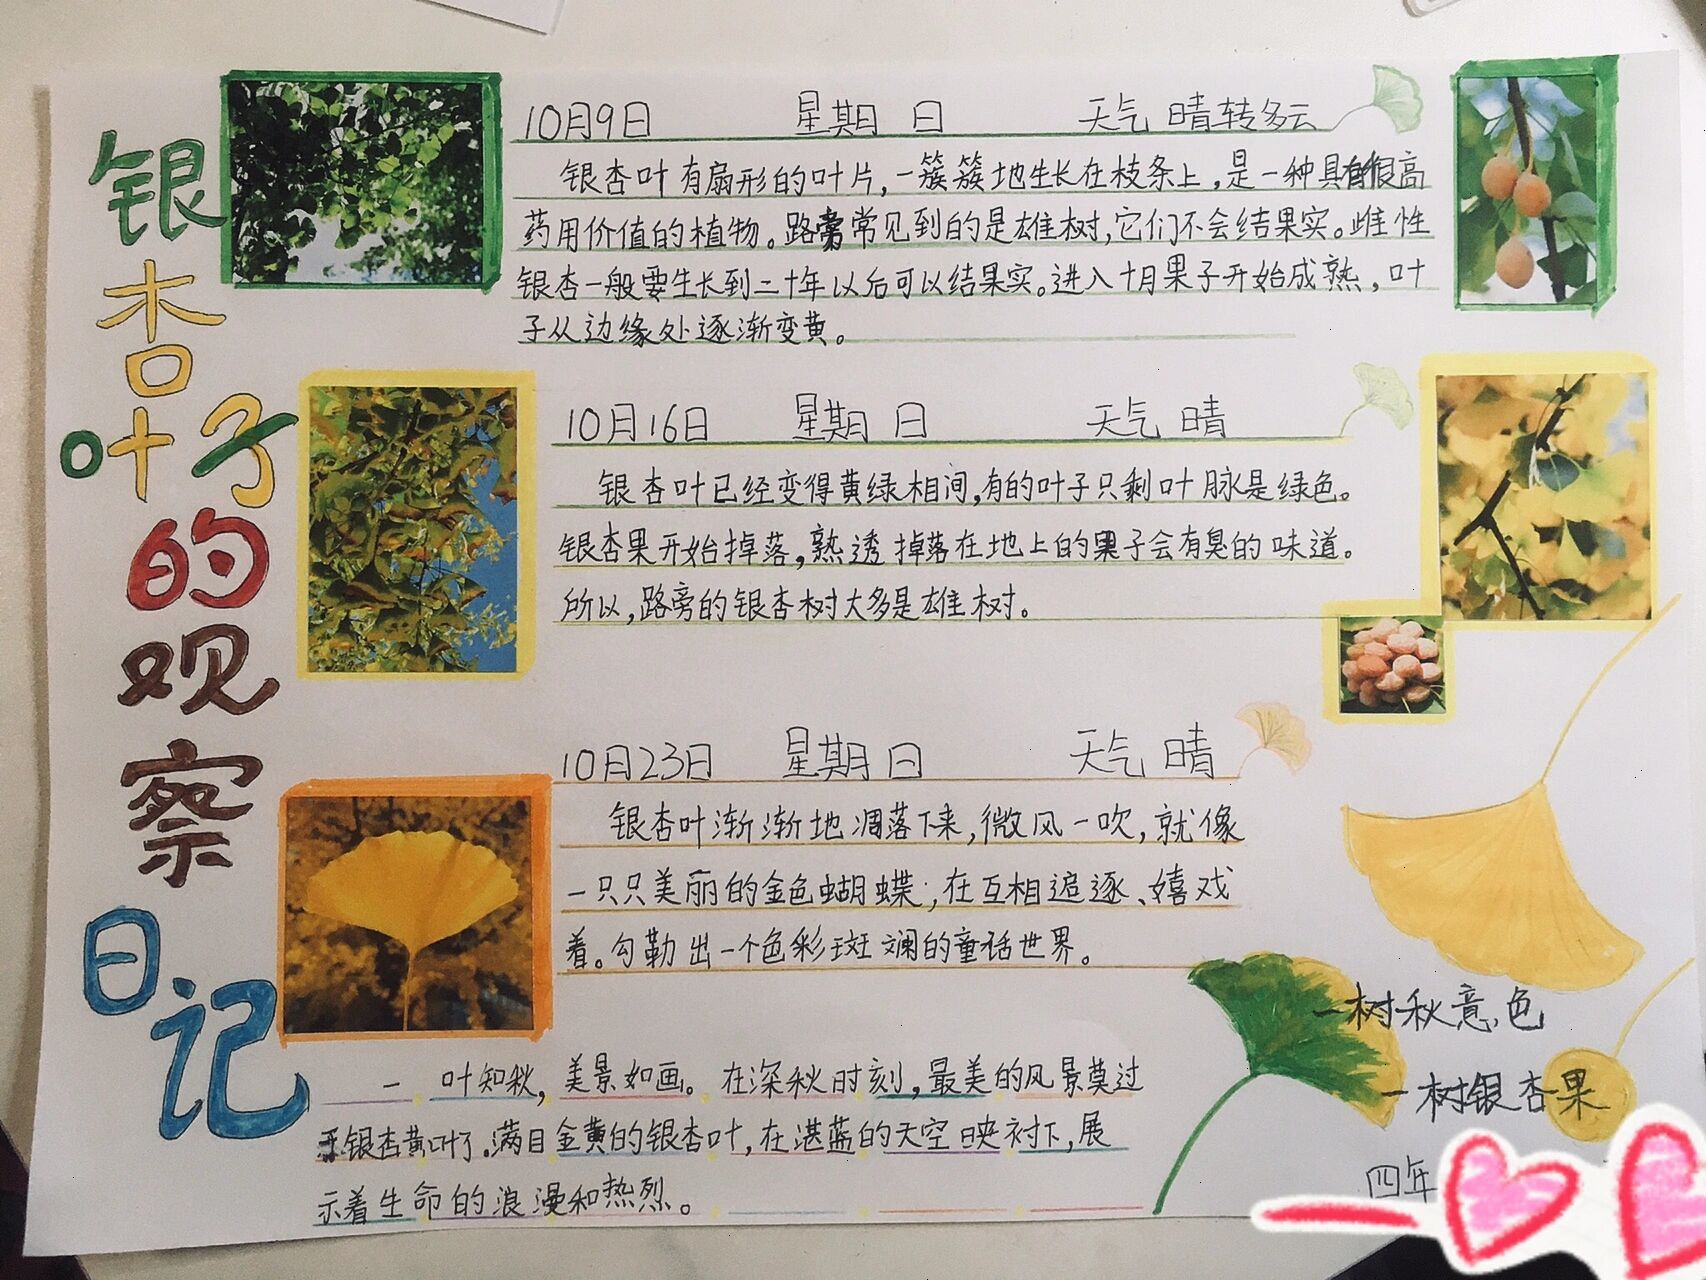 银杏叶子的观察日记
10月9日 星期日 天气 晴转多云
银杏叶有扇形的叶片,一簇簇地生长在枝条上,是一种具有很高
药用价值的植物。路旁常见到的是雄树,它们不会结果实。雌性
银杏一般要生长到二十年以后可以结果实。进入十月果子开始成熟,叶
子从边缘处逐渐变黄。
10月16日 星期日 天气 晴
银杏叶已经变得黄绿相间,有的叶子只剩叶脉是绿色。
银杏果开始掉落,熟透掉落在地上的果子会有臭的味道。
所以,路旁的银杏树大多是雄树。
10月23日 星期日 天气 晴
银杏叶渐渐地凋落下来,微风一吹,就像
一只只美丽的金色蝴蝶;在互相追逐、嬉戏
着。勾勒出一个色彩斑斓的童话世界。
一树秋意色
一树银杏果
一叶知秋,美景如画。在深秋时刻,最美的风景莫过
于银杏黄叶了.满目金黄的银杏叶,在湛蓝的天空映衬下,展
示着生命的浪漫和热烈。
四年